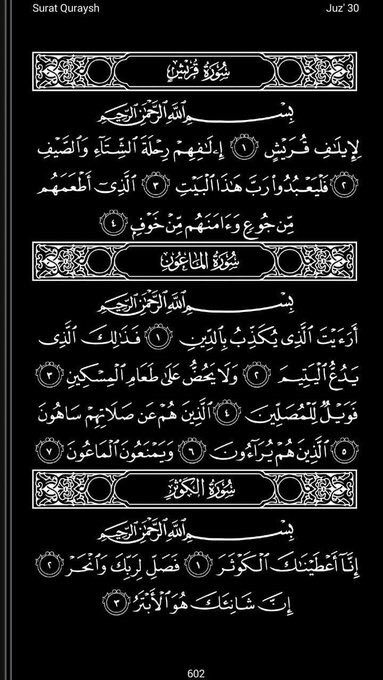 Surat Quraysh Juz' 30
سُورَةُ قُرَيْشٍ
بِسْمِ ٱللَّهِ ٱلرَّحْمَٰنِ ٱلرَّحِيمِ
لِإِيلَٰفِ قُرَيْشٍ ١ إِۦلَٰفِهِمْ رِحْلَةَ ٱلشِّتَآءِ وَٱلصَّيْفِ
٢ فَلْيَعْبُدُوا۟ رَبَّ هَٰذَا ٱلْبَيْتِ ٣ ٱلَّذِىٓ أَطْعَمَهُم
مِّن جُوعٍ وَءَامَنَهُم مِّنْ خَوْفٍۭ ٤
سُورَةُ المَاعُونِ
بِسْمِ ٱللَّهِ ٱلرَّحْمَٰنِ ٱلرَّحِيمِ
أَرَءَيْتَ ٱلَّذِى يُكَذِّبُ بِٱلدِّينِ ١ فَذَٰلِكَ ٱلَّذِى
يَدُعُّ ٱلْيَتِيمَ ٢ وَلَا يَحُضُّ عَلَىٰ طَعَامِ ٱلْمِسْكِينِ ٣
فَوَيْلٌ لِّلْمُصَلِّينَ ٤ ٱلَّذِينَ هُمْ عَن صَلَاتِهِمْ سَاهُونَ
٥ ٱلَّذِينَ هُمْ يُرَآءُونَ ٦ وَيَمْنَعُونَ ٱلْمَاعُونَ ٧
سُورَةُ الكَوْثَرِ
بِسْمِ ٱللَّهِ ٱلرَّحْمَٰنِ ٱلرَّحِيمِ
إِنَّآ أَعْطَيْنَٰكَ ٱلْكَوْثَرَ ١ فَصَلِّ لِرَبِّكَ وَٱنْحَرْ ٢
إِنَّ شَانِئَكَ هُوَ ٱلْأَبْتَرُ ٣
602